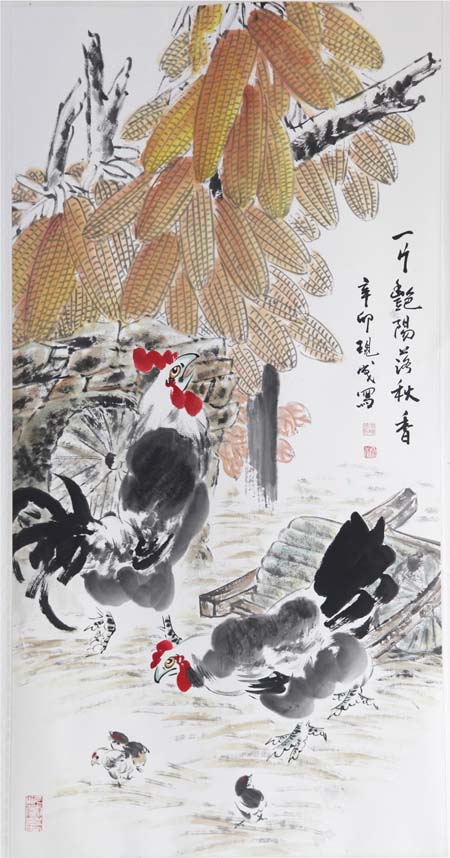 一片艷陽落秋香
辛卯現成寫